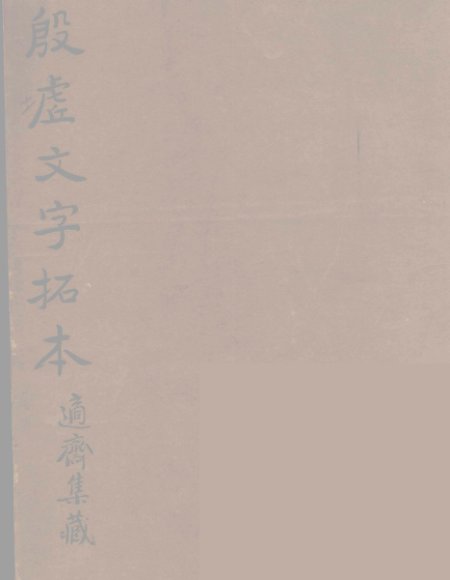 殷虚文字拓本
適齊集藏